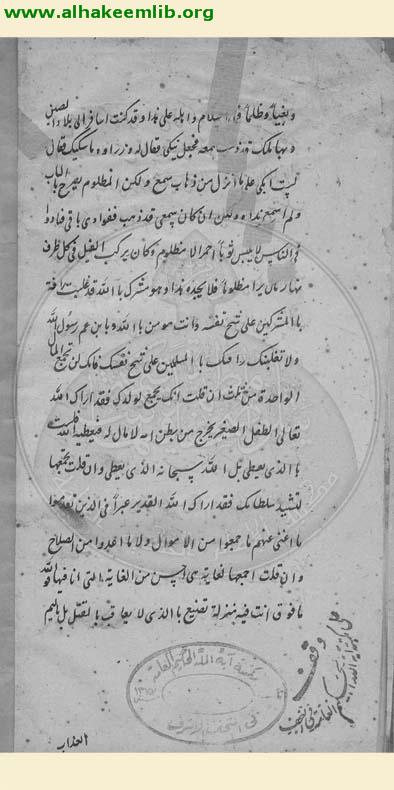 www.alhakeemlib.org
وبها ملك قد ذهب سمعه فجعل يبكي فقال له وزراؤه ما يبكيك فقال
لست ابكي على ما نزل من ذهاب سمعي ولكن المظلوم يصرخ بالباب
ولم اسمع نداءه ولكن ان كان سمعي قد ذهب ففؤادي باق فنادوا
في الناس لا يلبس ثوبا احمر الا مظلوم وكان يركب الفيل في كل طرف
نهار هل يرا مظلوما فلا يجده هذا وهو مشرك بالله قد غلبت رافته
بالمشركين على شح نفسه وانت مومن بالله وبابن عم رسول الله
ولا تغلبنك رافتك بالمسلمين على شح نفسك فانك لن تجمع المال
الا لواحدة من ثلث ان قلت انك تجمع لولدك فقد اراك الله
تعالى الطفل الصغير يخرج من بطن امه لا مال له فيعطيه الله فلست
بالذي يعطي بل الله سبحانه الذي يعطي وان قلت تجمعها
لتشيد سلطانك فقد اراك الله القدير عبرا في الذين تقدموا
ما اغنى عنهم ما جمعوا من الاموال ولا ما اعدوا من السلاح
وان قلت اجمعها لغاية هي احسن من الغاية التي انا فيها فوالله
ما فوق ما انت فيه منزلة تصنع بالذي لا يعاقب بالقتل بل باليم
العذاب
مكتبة آية الله الحكيم العامة
في النجف الاشرف
وقف